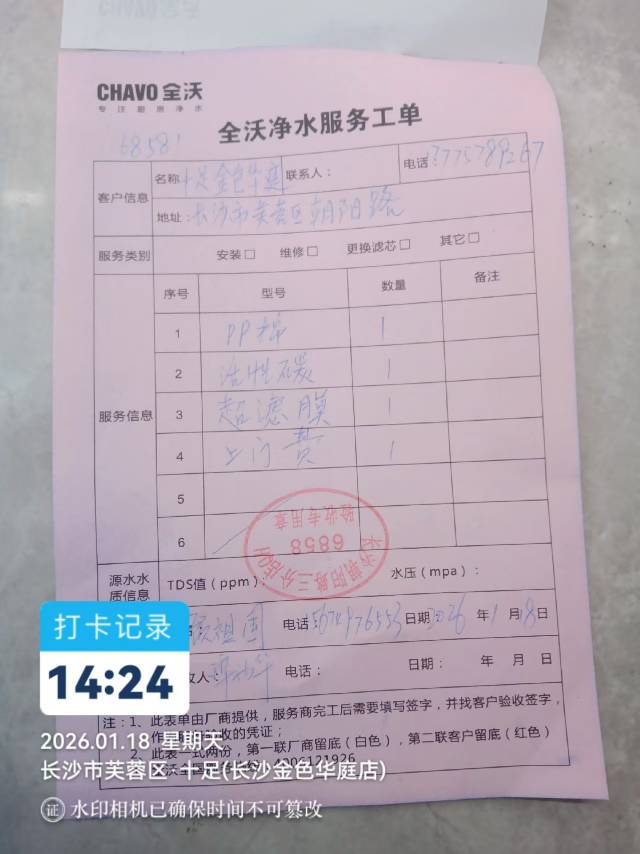 CHAVO 全沃
专注厨房净水
全沃净水服务工单
68581
客户信息 名称 十足金色华庭 联系人： 电话
地址：长沙市芙蓉区朝阳路
服务类别 安装□ 维修□ 更换滤芯□ 其它□
服务信息 序号 型号 数量 备注
1 PP棉 1
2 活性碳 1
3 超滤膜 1
4 上门费 1
5
6
长沙朝阳路三分店
6858
验收专用章
源水水质信息 TDS值（ppm）： 水压（mpa）：
祖国 电话： 日期：2026年1月18日
收人： 电话： 日期： 年 月 日
注：1、此表单由厂商提供，服务商完工后需要填写签字，并找客户验收签字，
作 的凭证；
2、此表一式两份，第一联厂商留底（白色），第二联客户留底（红色）
沃全国 4006121926
打卡记录
14:24
2026.01.18 星期天
长沙市芙蓉区·十足(长沙金色华庭店)
证 水印相机已确保时间不可篡改